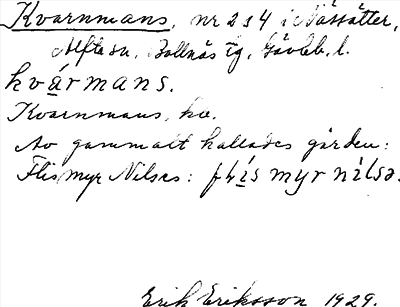 Kvarnmans, nr 2 o 4 i Näsätter,
Alfta sn, Bollnäs tg, Gävleb. l.
kvármans.
Kvarnmans, hv.
Av gammalt kallades gården:
Flis myr Nilses: flis myr nilsa.
Erik Eriksson 1929.